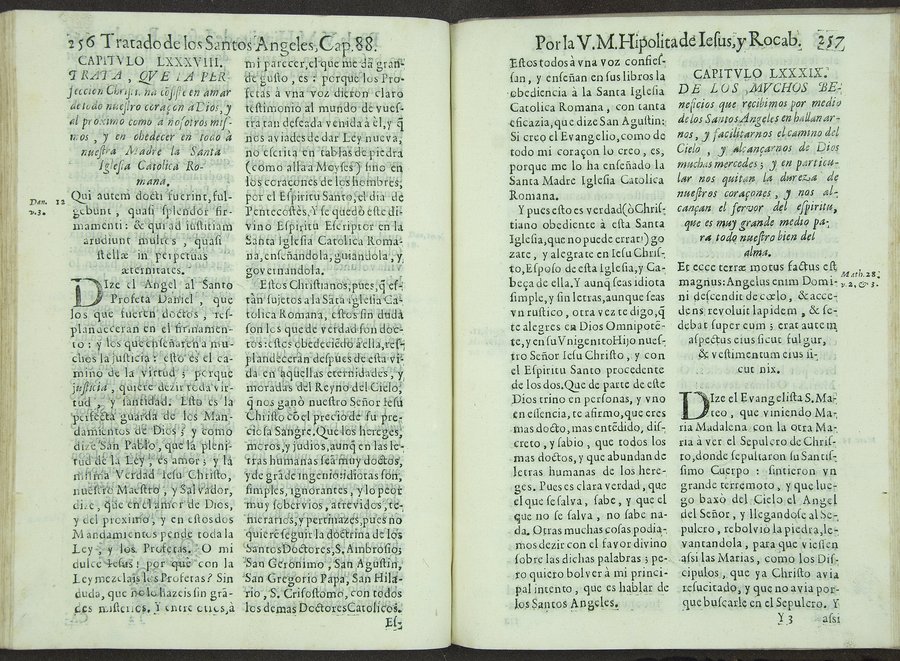 256 Tratado de los Santos Angeles, Cap. 88.
CAPITVLO LXXXVIII.
TRATA, QVE LA PER-
feccion Christiana cõsiste en amar
de todo nuestro coraçon a Dios, y
al proximo como a nosotros mis-
mos, y en obedecer en todo à
nuestra Madre la Santa
Iglesia Catolica Ro-
mana.
Dan. 12
v.3.
Qui autem docti fuerint, ful-
gebunt, quasi splendor fir-
mamenti: & qui ad iustitiam
erudiunt multos, quasi
stellæ in perpetuas
æternitates.
DIze el Angel al Santo
Profeta Daniel, que
los que fueren doctos, res-
plandeceran en el firmamen-
to: y los que enseñaren a mu-
chos la justicia: esto es el ca-
mino de la virtud; porque
justicia, quiere dezir toda vir-
tud, y santidad. Esto es la
perfecta guarda de los Man-
damientos de Dios; y como
dize San Pablo, que la pleni-
tud de la Ley, es amor; y la
misma Verdad Iesu Christo,
nuestro Maestro, y Salvador,
dize, que en el amor de Dios,
y del proximo, y en estos dos
Mandamientos pende toda la
Ley, y los Profetas. O mi
dulce Iesus! por què con la
Ley mezclais los Profetas? Sin
duda, que no lo hazeis sin grã-
des misterios. Y entre otros, à
mi parecer, el que me dà gran-
de gusto, es: porque los Pro-
fetas à vna voz dieron claro
testimonio al mundo de vues-
tra tan deseada venida à èl, y q̃
nos aviades de dar Ley nueva,
no escrita en tablas de piedra
(como allà a Moyses) sino en
los coraçones de los hombres,
por el Espiritu Santo, el dia de
Pentecostès, Y se quedò este di-
vino Espiritu Escriptor en la
Santa Iglesia Catolica Roma-
na, enseñandola, guiandola, y
governandola.
Estos Christianos, pues, q̃ es-
tàn sujetos a la Sãta Iglesia Ca-
tolica Romana, estos sin duda
son los que de verdad son doc-
tos: estos obedeciẽdo a ella, res-
plandecerán despues de esta vi-
da en aquellas eternidades, y
moradas del Reyno del Cielo,
q̃ nos ganò nuestro Señor Iesu
Christo cõ el precio de su pre-
ciosa Sangre. Que los hereges,
moros, y judios, aunq̃ en las le-
tras humanas seã muy doctos,
y de grãde ingenio: idiotas son,
simples, ignorantes, y lo peor
muy sobervios, atrevidos, te-
merarios, y pertinazes, pues no
quierẽ seguir la doctrina de los
Santos Doctores, S. Ambrosio,
San Geronimo, San Agustin,
San Gregorio Papa, San Hila-
rio, S. Crisostomo, con todos
los demas Doctores Catolicos.
Es-
Por la V. M. Hipolita de Iesus, y Rocab. 257
Estos todos à vna voz confies-
san, y enseñan en sus libros la
obediencia à la Santa Iglesia
Catolica Romana, con tanta
eficazia, que dize San Agustin:
Si creo el Evangelio, como de
todo mi coraçon lo creo, es,
porque me lo ha enseñado la
Santa Madre Iglesia Catolica
Romana.
Y pues esto es verdad (ò Chris-
tiano obediente à esta Santa
Iglesia, que no puede errar) go
zate, y alegrate en Iesu Chris-
to, Esposo de esta Iglesia, y Ca-
beça de ella. Y aunq̃ seas idiota
simple, y sin letras, aunque seas
vn rustico, otra vez te digo, q̃
te alegres en Dios Omnipotẽ-
te, y en su Vnigenito Hijo nues-
tro Señor Iesu Christo, y con
el Espiritu Santo procedente
de los dos. Que de parte de este
Dios trino en personas, y vno
en essencia, te afirmo, que eres
mas docto, mas entẽdido, dis-
creto, y sabio, que todos los
mas doctos, y que abundan de
letras humanas de los here-
ges. Pues es clara verdad, que
el que se salva, sabe, y que el
que no se salva, no sabe na-
da. Otras muchas cosas podia-
mos dezir con el favor divino
sobre las dichas palabras; pe-
ro quiero bolver à mi princi-
pal intento, que es hablar de
los Santos Angeles.
CAPITVLO LXXXIX.
DE LOS MVCHOS BE-
neficios que recibimos por medio
de los Santos Angeles en ballanar-
nos, y facilitarnos el camino del
Cielo, y alcançarnos de Dios
muchas mercedes; y en particu-
lar nos quitan la dureza de
nuestros coraçones, y nos al-
cançan el fervor del espiritu,
que es muy grande medio pa-
ra todo nuestro bien del
alma.
Et ecce terræ motus factus est
magnus: Angelus enim Domi-
ni descendit de cœlo, & acce-
dens revoluit lapidem, & se-
debat super eum; erat autem
aspectus eius sicut fulgur,
& vestimentum eius si-
cut nix.
Math. 28.
v. 2. & 3.
DIze el Evangelista S. Ma-
teo, que viniendo Ma-
ria Madalena con la otra Ma-
ria à ver el Sepulcro de Chris-
to, donde sepultaron su Santis-
simo Cuerpo: sintieron vn
grande terremoto, y que lue-
go baxò del Cielo el Angel
del Señor, y llegandose al Se-
pulcro, rebolviò la piedra, le-
vantandola, para que viessen
assi las Marias, como los Dis-
cipulos, que ya Christo avia
resucitado, y que no avia por-
que buscarle en el Sepulcro. Y
Y 3 assi